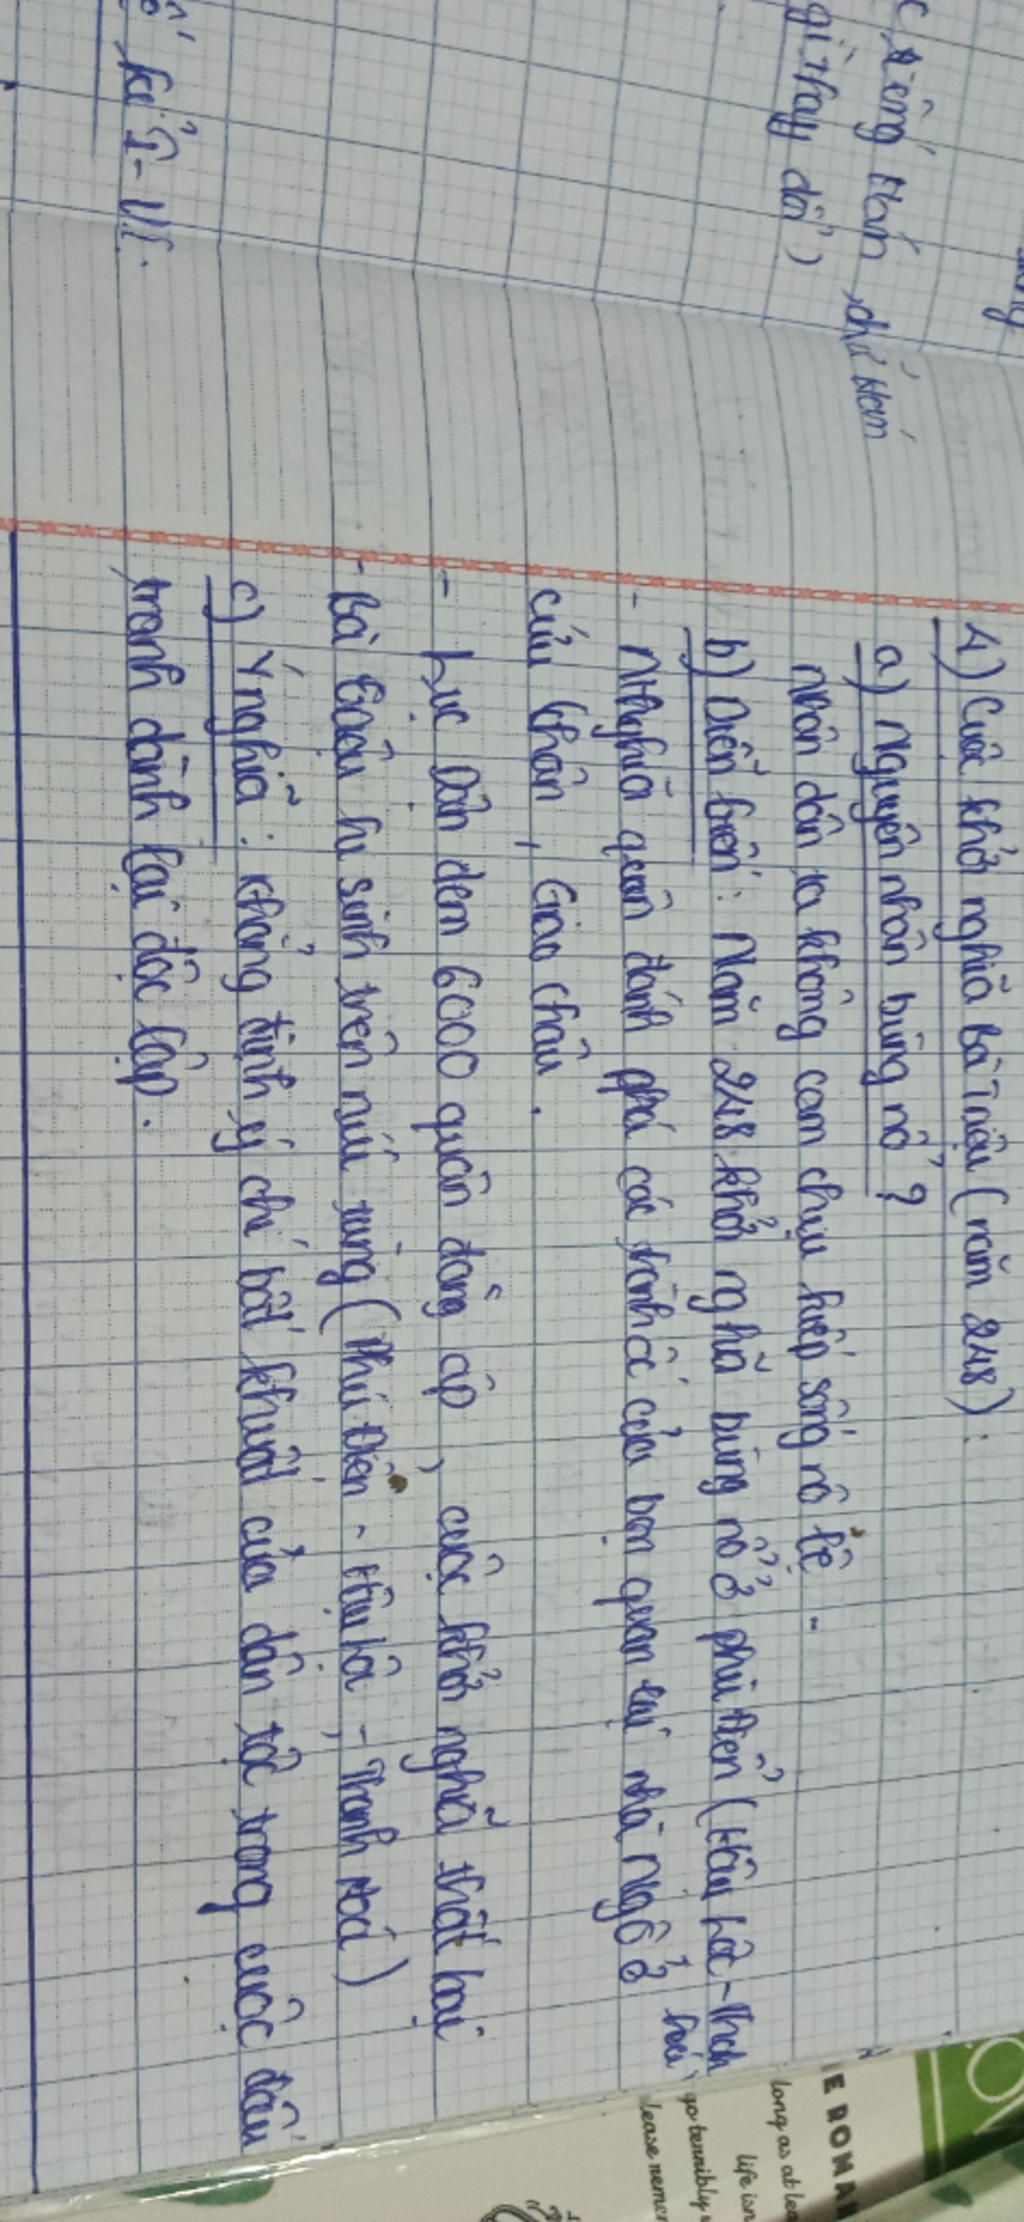 c, tiếng Hán, chữ Hán
gì thay đổi)
kỉ I - VI.
4) Cuộc khởi nghĩa Bà Triệu (năm 248):
a) Nguyên nhân bùng nổ?
nhân dân ta không cam chịu kiếp sống nô lệ -
b) Diễn biến: Năm 248 khởi nghĩa bùng nổ ở phú Điền (Hậu Lộc - Thanh
hoá)
- Nghĩa quân đánh phá các thành ấ của bọn quan lại nhà Ngô ở
cửu chân, Giao châu.
- Lục Dận đem 6000 quân đông áp, cuộc khởi nghĩa thất bại
- Bà Triệu hi sinh trên núi tùng (Phú Điền - Hậu Lộ - Thanh Hoá)
c) Ý nghĩa: khẳng định ý chí bất khuất của dân tộc trong cuộc đấu
tranh dành lại độc lập.
long as at lea
life isn
go terribly
lease remem